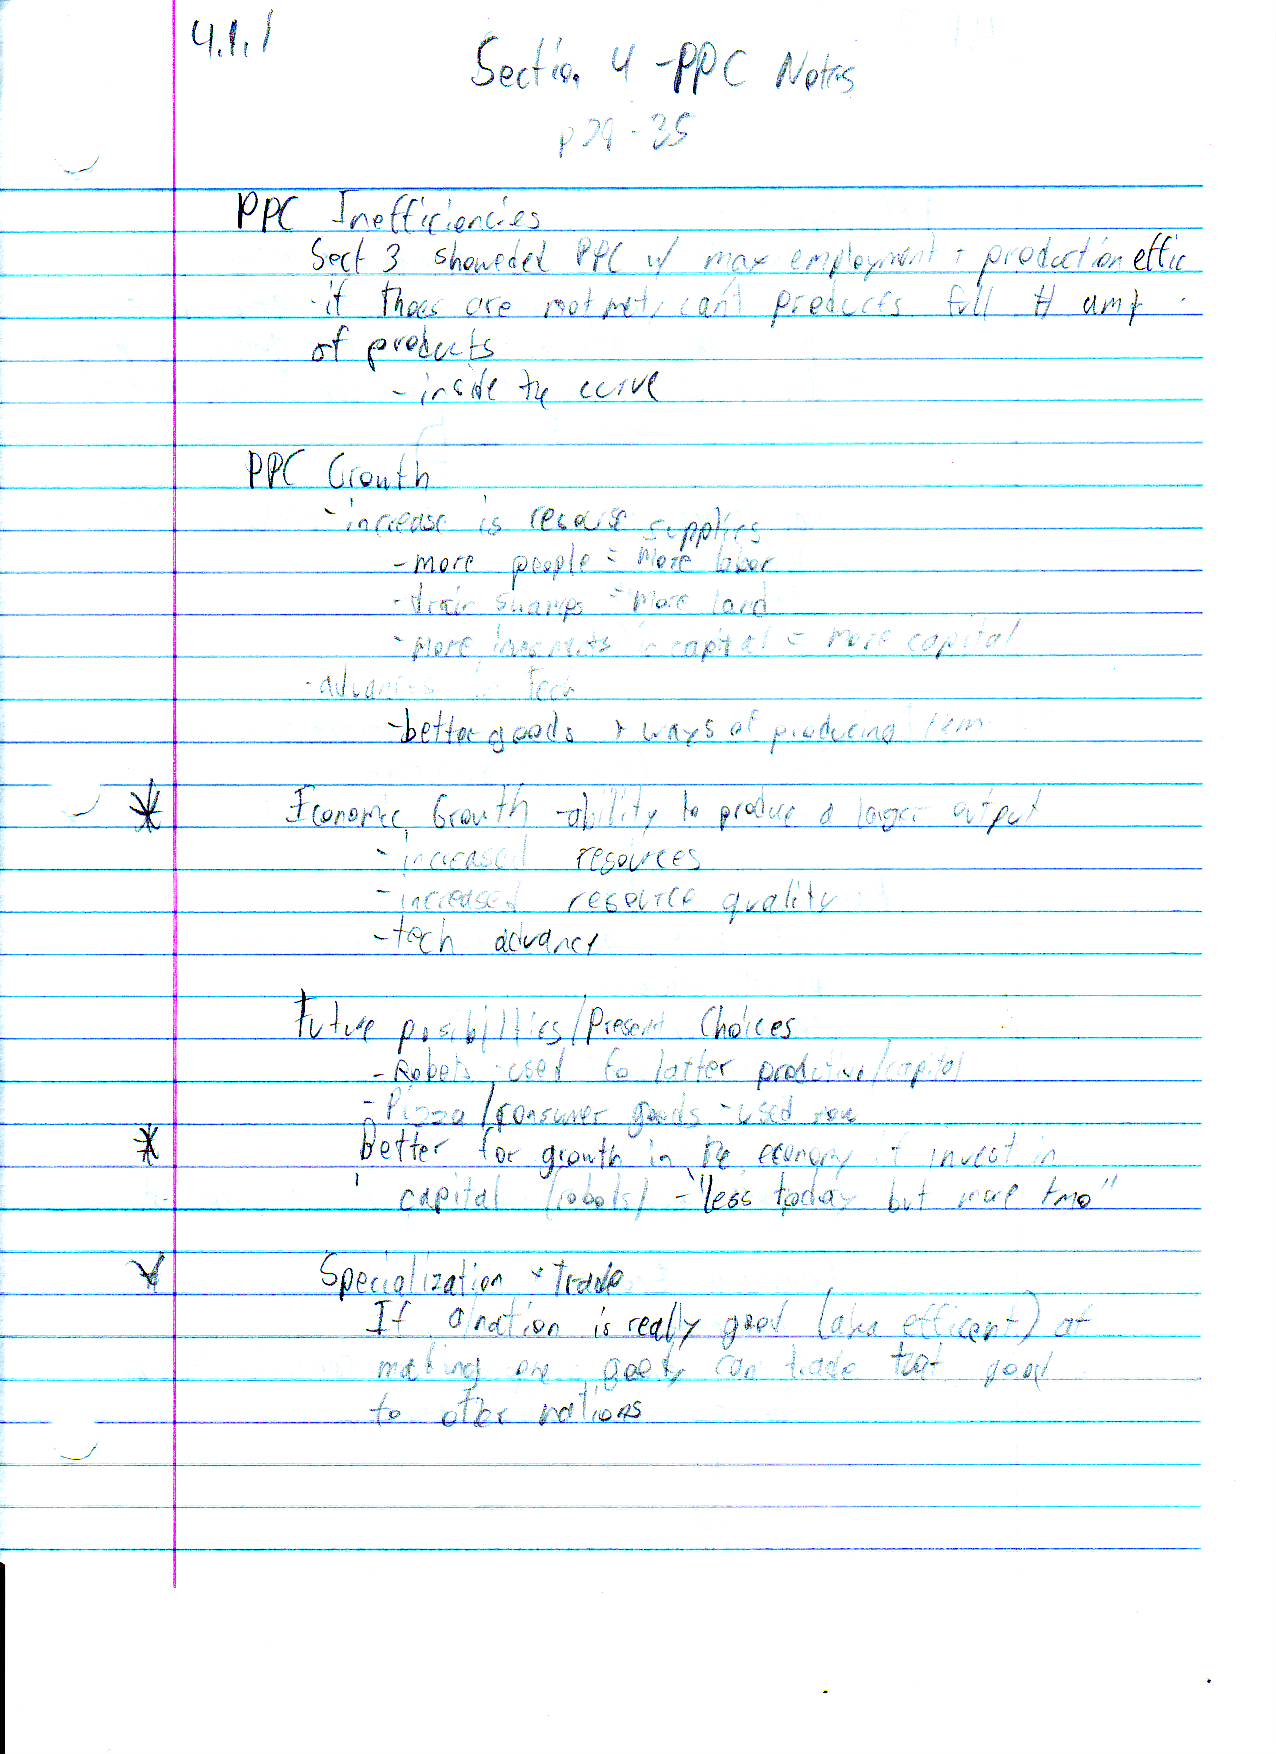 4.1.1
Section 4 - PPC Notes
p 29 - 35
PPC Inefficiencies
Sect 3 showeded PPC w/ max employment + production effic
- if thoes are not met, can't produces full # amt
of products
- inside the curve
PPC Growth
- increase is resource supplies
- more people = more labor
- drain swamps = more land
- more investments in capital = more capital
- advances in tech
- better goods + ways of producing them
* Economic Growth - ability to produce a larger output
- increased resources
- increased resource quality
- tech advancy
Future posibilities/Present Choices
- Robots - used to latter productive/capital
- Pizza/consumer goods - used now
* Better for growth in the economy if invest in
capital (robots) - "less today but more tmo"
* Specialization + trade
If a nation is really good (aka efficent) at
making one good, can trade that good
to other nations